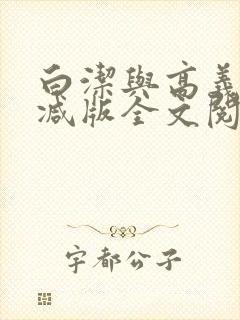 白潔與高義
减版全文閱
宇都公子